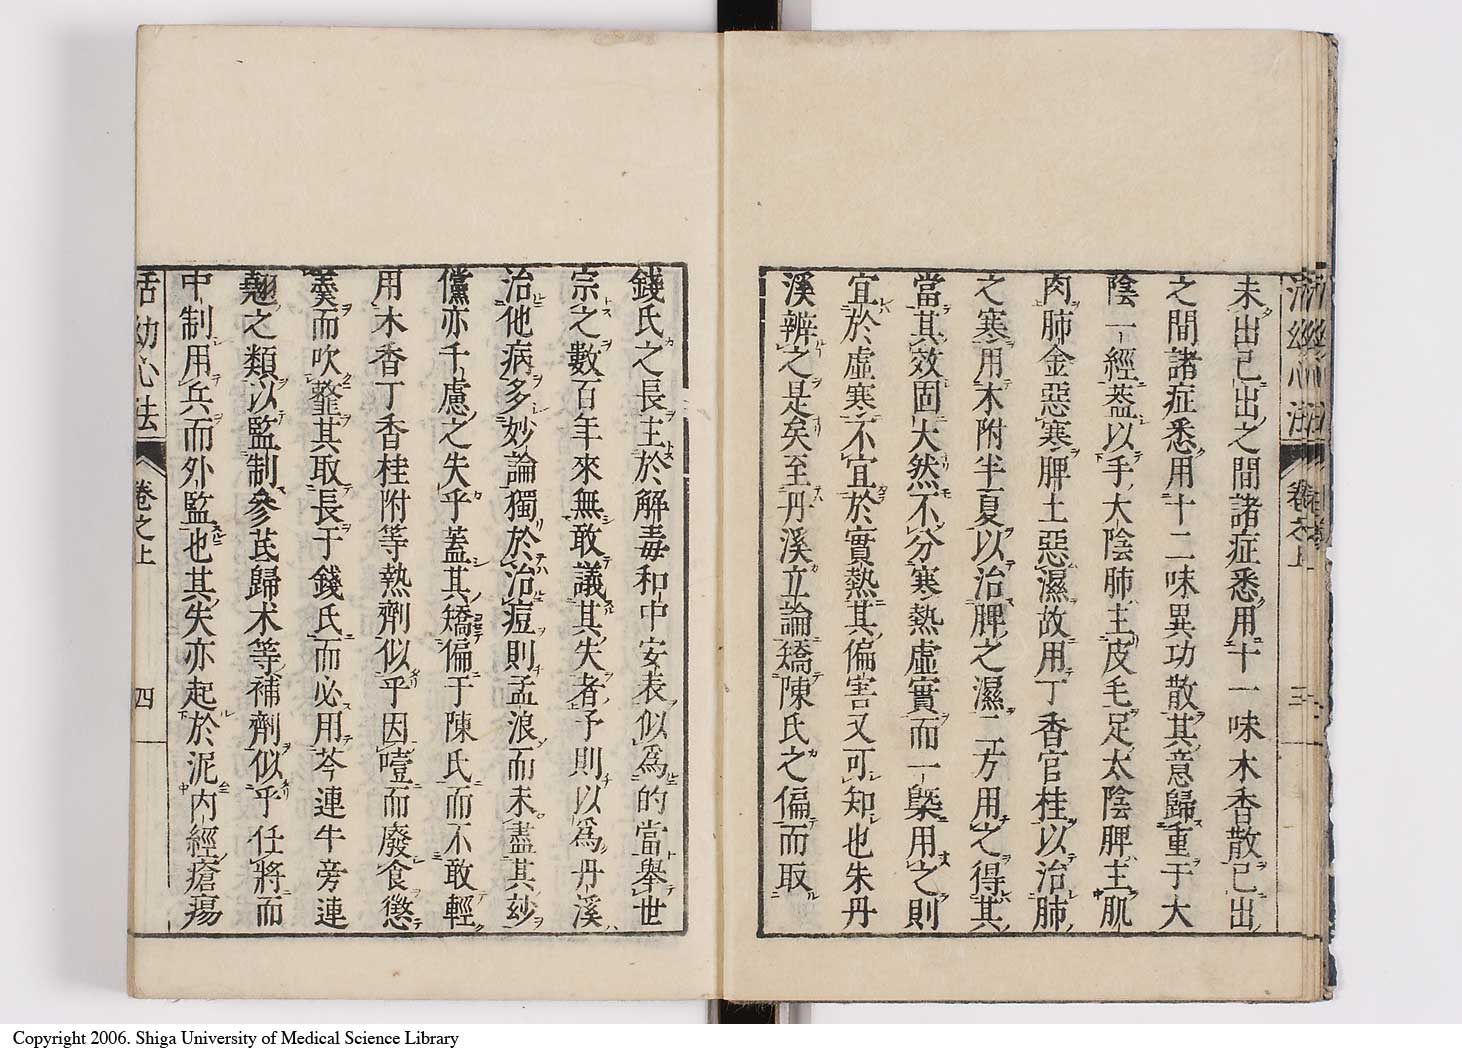 未出已出之間諸症悉用十一味木香散已出
之間諸症悉用十二味異功散其意歸重于大
陰一經蓋以手大陰肺主皮毛足太陰脾主肌
肉肺金惡寒脾土惡濕故用丁香官桂以治肺
之寒用木附半夏以治脾之濕二方用之得其
當其效固大然不分寒熱虛實而一槩用之則
宜於虛寒不宜於實熱其偏害又可知也朱丹
溪辨之是矣至丹溪立論矯陳氏之偏而取
錢氏之長主於解毒和中安表似爲的當舉世
宗之數百年來無敢議其失者予則以爲丹溪
治他病多妙論獨於治痘則孟浪而未盡其妙
儻亦千慮之失乎蓋其矯偏于陳氏而不敢輕
用木香丁香桂附等熱劑似乎因噎而廢食懲
羹而吹韲其取長于錢氏而必用芩連牛旁連
翹之類以監制參芪歸术等補劑似乎任將而
中制用兵而外監也其失亦起於泥内經瘡瘍
活幼心法
卷之上
四
卷之上
三
Copyright 2006. Shiga University of Medical Science Library